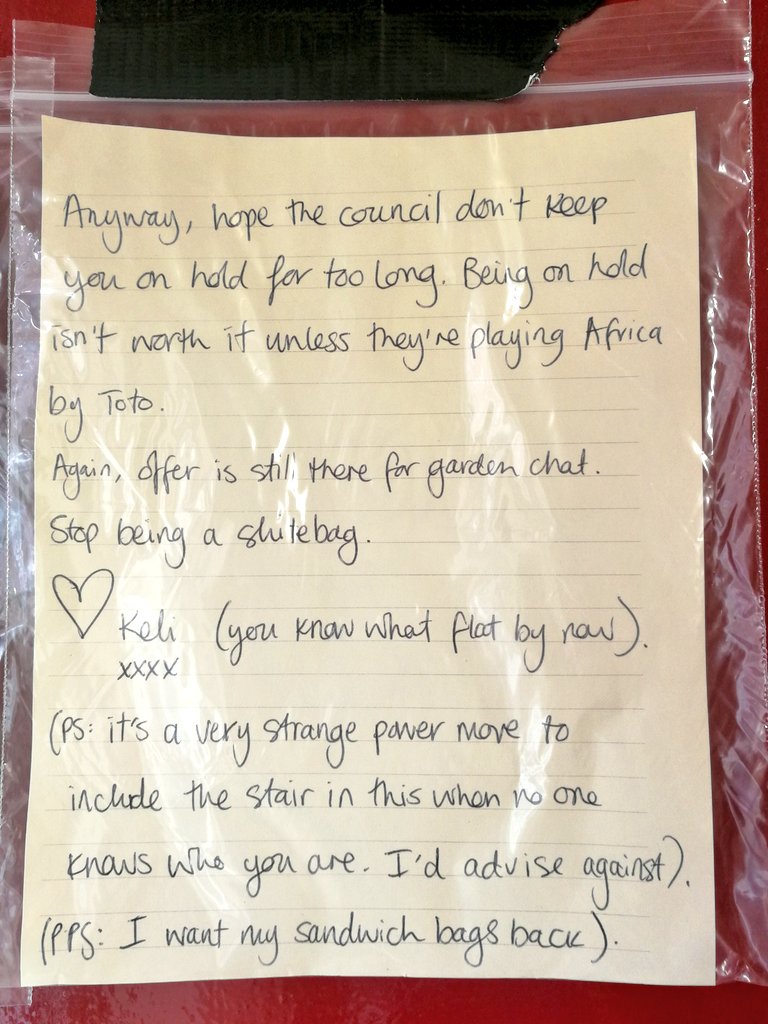 Anyway, hope the council don't keep
you on hold for too long. Being on hold
isn't worth it unless they're playing Africa
by Toto.
Again, offer is still there for garden chat.
Stop being a shitebag.
Keli (you know what flat by now).
xxxx
(PS: it's a very strange power move to
include the stair in this when no one
knows who you are. I'd advise against).
(PPS: I want my sandwich bags back).